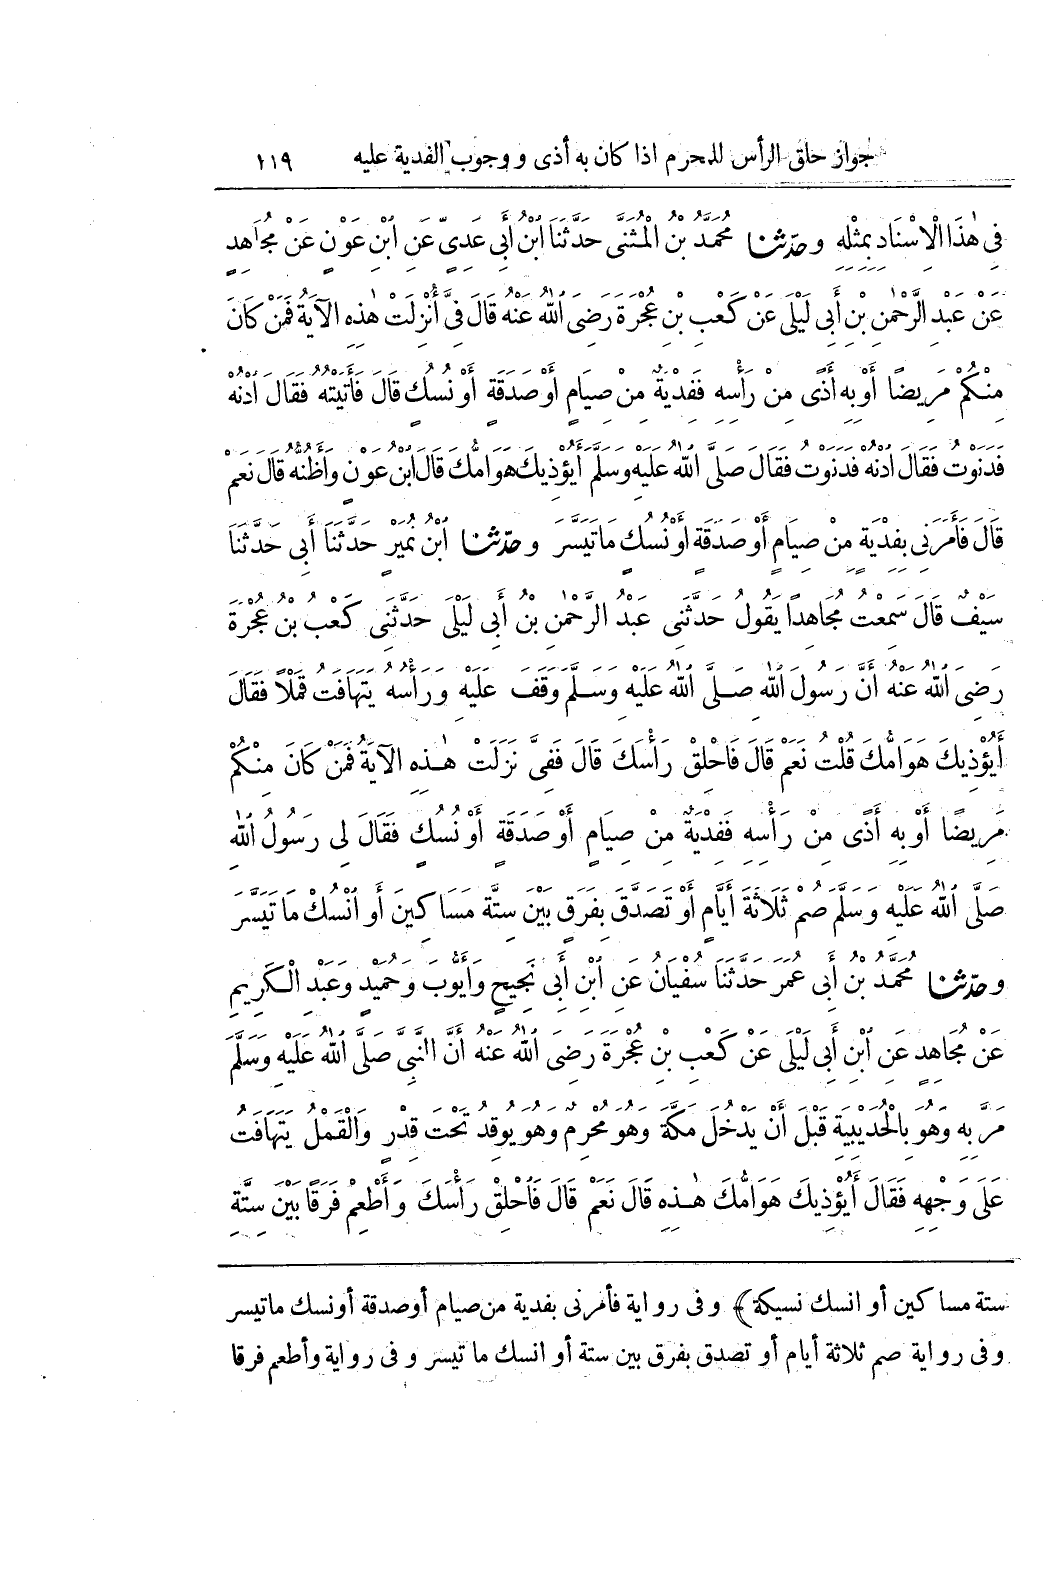 جواز حلق الرأس للمحرم اذا كان به أذى ووجوب الفدية عليه ١١٩
فِى هٰذَا الْاِسْنَادِ بِمِثْلِهِ وحدّثنا مُحَمَّدُ بْنُ الْمُثَنَّى حَدَّثَنَا ابْنُ أَبِى عَدِىٍّ عَنِ ابْنِ عَوْنٍ عَنْ مُجَاهِدٍ
عَنْ عَبْدِ الرَّحْمٰنِ بْنِ أَبِى لَيْلَى عَنْ كَعْبِ بْنِ عُجْرَةَ رَضِىَ اللّٰهُ عَنْهُ قَالَ فِىَّ أُنْزِلَتْ هٰذِهِ الآيَةُ فَمَنْ كَانَ
مِنْكُمْ مَرِيضًا أَوْ بِهِ أَذًى مِنْ رَأْسِهِ فَفِدْيَةٌ مِنْ صِيَامٍ أَوْ صَدَقَةٍ أَوْ نُسُكٍ قَالَ فَأَتَيْتُهُ فَقَالَ ادْنُهْ
فَدَنَوْتُ فَقَالَ ادْنُهْ فَدَنَوْتُ فَقَالَ صَلَّى اللّٰهُ عَلَيْهِ وَسَلَّمَ أَيُؤْذِيكَ هَوَامُّكَ قَالَ ابْنُ عَوْنٍ وَأَظُنُّهُ قَالَ نَعَمْ
قَالَ فَأَمَرَنِى بِفِدْيَةٍ مِنْ صِيَامٍ أَوْ صَدَقَةٍ أَوْ نُسُكٍ مَا تَيَسَّرَ وحدّثنا ابْنُ نُمَيْرٍ حَدَّثَنَا أَبِى حَدَّثَنَا
سَيْفٌ قَالَ سَمِعْتُ مُجَاهِدًا يَقُولُ حَدَّثَنِى عَبْدُ الرَّحْمٰنِ بْنُ أَبِى لَيْلَى حَدَّثَنِى كَعْبُ بْنُ عُجْرَةَ
رَضِىَ اللّٰهُ عَنْهُ أَنَّ رَسُولَ اللّٰهِ صَلَّى اللّٰهُ عَلَيْهِ وَسَلَّمَ وَقَفَ عَلَيْهِ وَرَأْسُهُ يَتَهَافَتُ قَمْلًا فَقَالَ
أَيُؤْذِيكَ هَوَامُّكَ قُلْتُ نَعَمْ قَالَ فَاحْلِقْ رَأْسَكَ قَالَ فَفِىَّ نَزَلَتْ هٰذِهِ الآيَةُ فَمَنْ كَانَ مِنْكُمْ
مَرِيضًا أَوْ بِهِ أَذًى مِنْ رَأْسِهِ فَفِدْيَةٌ مِنْ صِيَامٍ أَوْ صَدَقَةٍ أَوْ نُسُكٍ فَقَالَ لِى رَسُولُ اللّٰهِ
صَلَّى اللّٰهُ عَلَيْهِ وَسَلَّمَ صُمْ ثَلَاثَةَ أَيَّامٍ أَوْ تَصَدَّقْ بِفَرَقٍ بَيْنَ سِتَّةِ مَسَاكِينَ أَوِ انْسُكْ مَا تَيَسَّرَ
وحدّثنا مُحَمَّدُ بْنُ أَبِى عُمَرَ حَدَّثَنَا سُفْيَانُ عَنِ ابْنِ أَبِى نَجِيحٍ وَأَيُّوبَ وَحُمَيْدٍ وَعَبْدِ الْكَرِيمِ
عَنْ مُجَاهِدٍ عَنِ ابْنِ أَبِى لَيْلَى عَنْ كَعْبِ بْنِ عُجْرَةَ رَضِىَ اللّٰهُ عَنْهُ أَنَّ النَّبِىَّ صَلَّى اللّٰهُ عَلَيْهِ وَسَلَّمَ
مَرَّ بِهِ وَهُوَ بِالْحُدَيْبِيَةِ قَبْلَ أَنْ يَدْخُلَ مَكَّةَ وَهُوَ مُحْرِمٌ وَهُوَ يُوقِدُ تَحْتَ قِدْرٍ وَالْقَمْلُ يَتَهَافَتُ
عَلَى وَجْهِهِ فَقَالَ أَيُؤْذِيكَ هَوَامُّكَ هٰذِهِ قَالَ نَعَمْ قَالَ فَاحْلِقْ رَأْسَكَ وَأَطْعِمْ فَرَقًا بَيْنَ سِتَّةِ
ستة مساكين أو انسك نسيكة﴾ وفى رواية فأمرنى بفدية من صيام أو صدقة أو نسك ما تيسر
وفى رواية صم ثلاثة أيام أو تصدق بفرق بين ستة أو انسك ما تيسر وفى رواية وأطعم فرقا